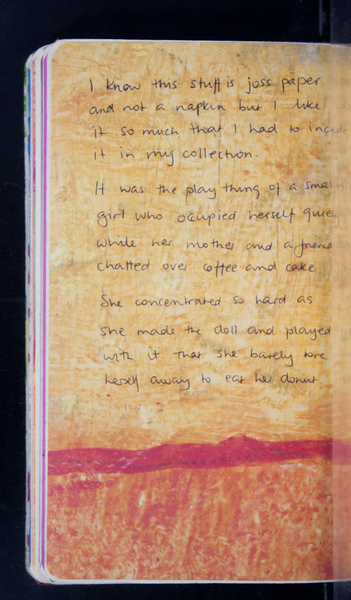 I know this stuff is joss paper
and not a napkin but I like
it so much that I had to
it in my collection.
It was the play thing of a
girl who occupied herself
while her mother and a friend
chatted over coffee and cake
She concentrated so hard as
she made the doll and played
with it that she barely tore
herself away to eat her donut.